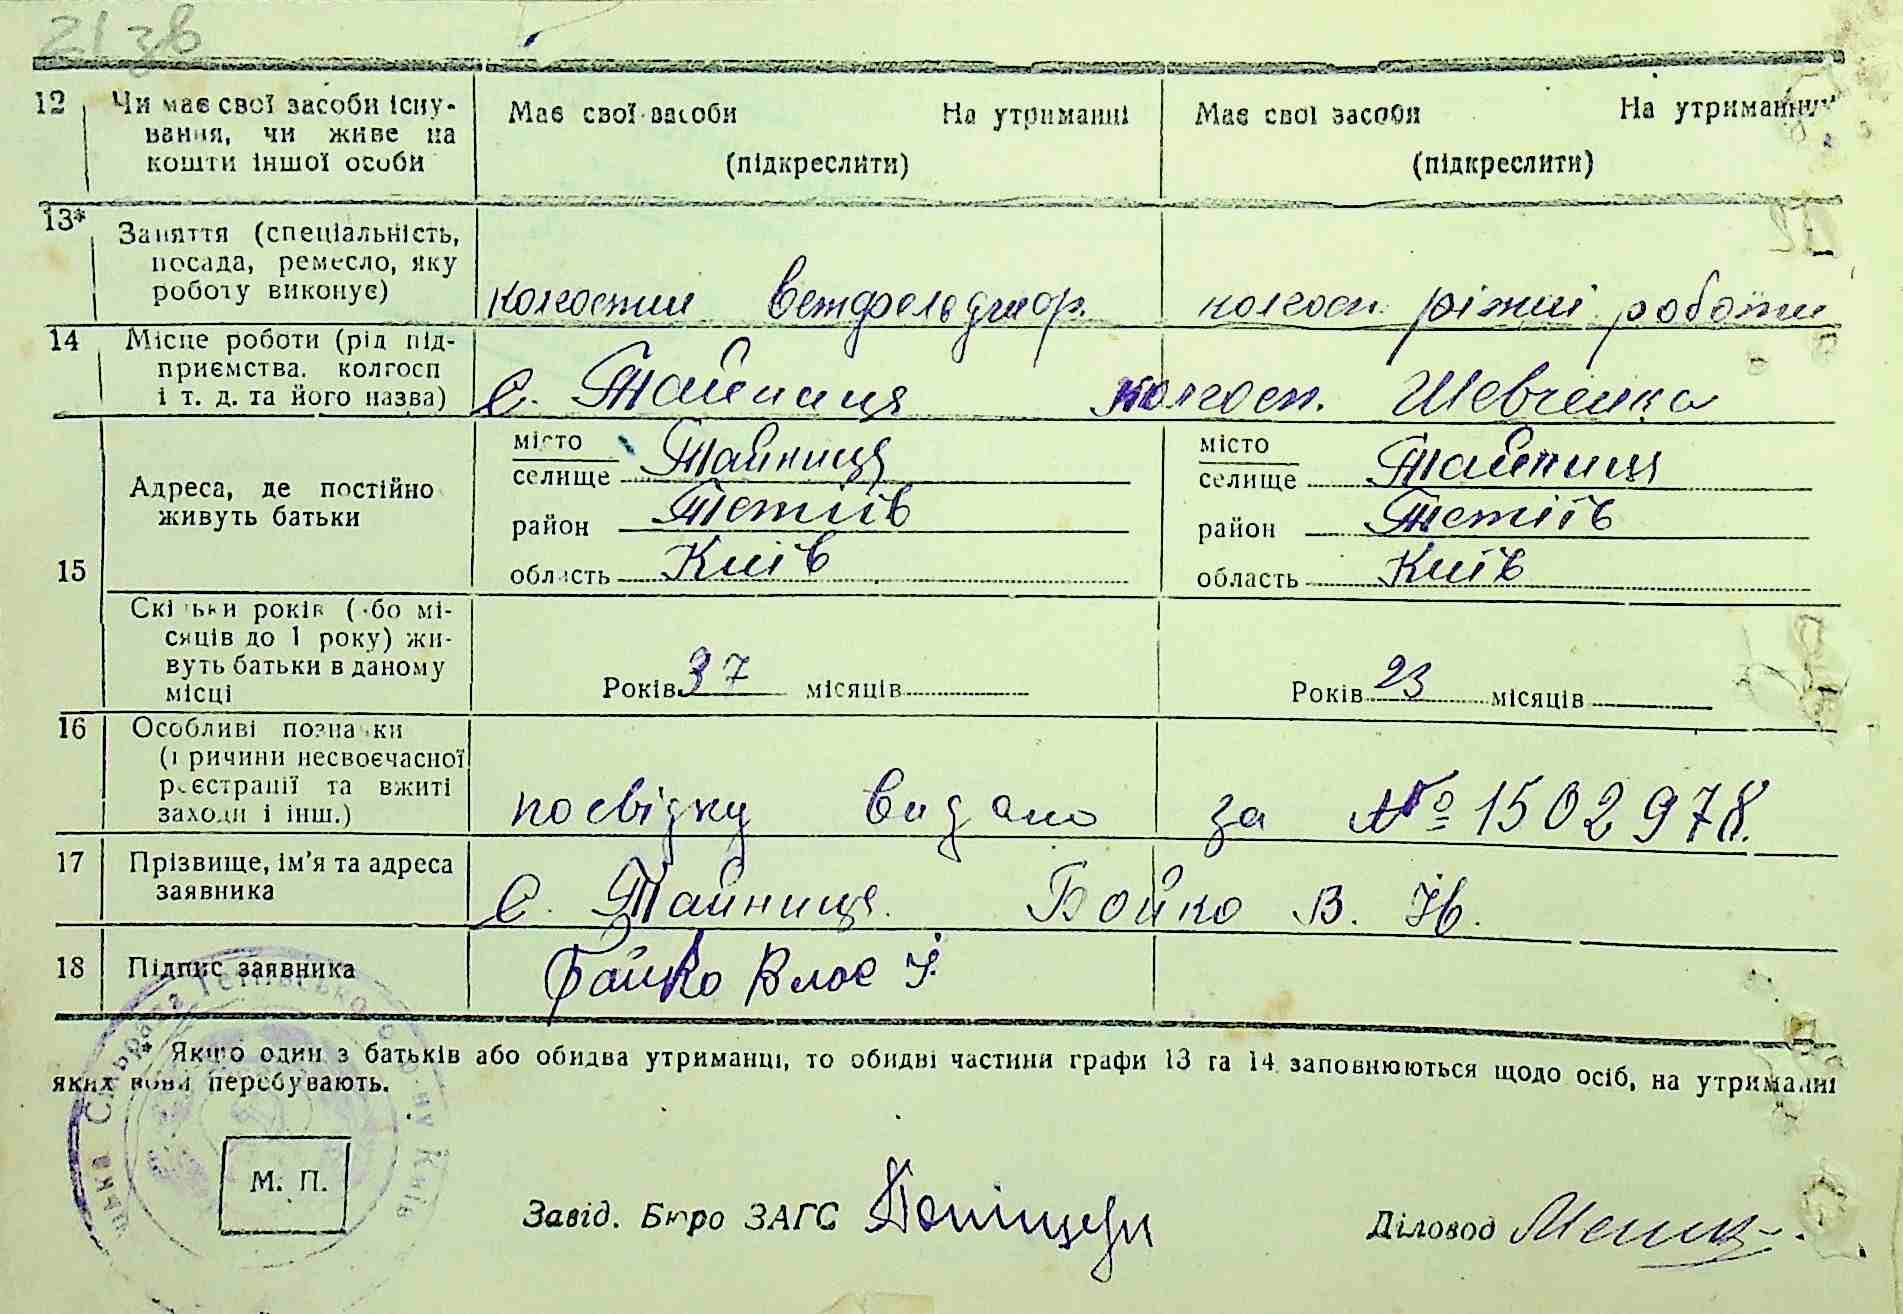 21 зв
12 Чи має свої засоби існу-
вання, чи живе на
кошти іншої особи
Має свої засоби На утриманні
(підкреслити)
Має свої засоби На утриманні
(підкреслити)
13* Заняття (спеціальність,
посада, ремесло, яку
роботу виконує)
ветфельдшор. колгосп. ріжні роботи
14 Місце роботи (рід під-
приємства, колгосп
і т. д. та його назва)
С. Тайниця колгосп. Шевченка
15 Адреса, де постійно
живуть батьки
місто
селище Тайниця
район Тетіїв
область Київ
місто
селище Тайниця
район Тетіїв
область Київ
Скільки років (або мі-
сяців до 1 року) жи-
вуть батьки в даному
місці
Років 37 місяців
Років 23 місяців
16 Особливі позначки
(причини несвоєчасної
реєстрації та вжиті
заходи і інш.)
посвідку видано за № 1502978.
17 Прізвище, ім'я та адреса
заявника
С. Тайниця. Бойко В. Ів.
18 Підпис заявника
Бойко Влас І.
* Якщо один з батьків або обидва утриманці, то обидві частини графи 13 та 14 заповнюються щодо осіб, на утриманні
яких вони перебувають.
М. П.
Завід. Бюро ЗАГС
Діловод